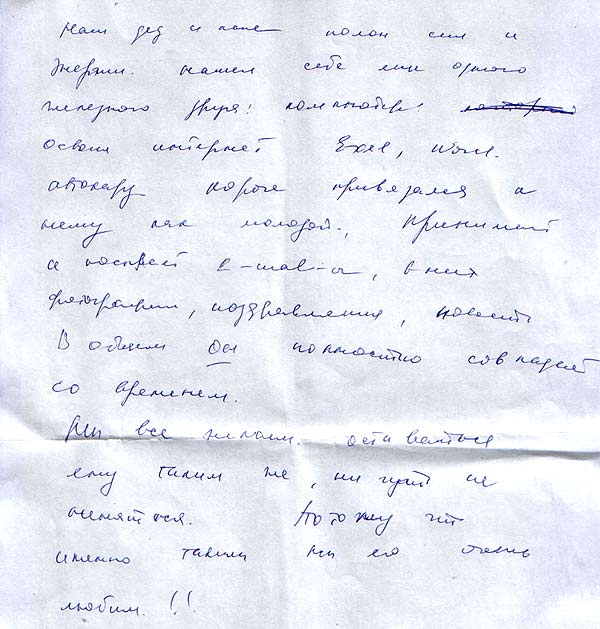 наш дед и папа полон сил и
энергии. нашел себе еще одного
железного зверя: компьютер!
освоил интернет Exel, Word.
короче привязался к
нему как молодой., принимает
и посылает e-mail-ы, в них
фотографии, поздравления, новости
В общем он полностью совпадает
со временем.
Мы все желаем. оставаться
ему таким же, ни чуть не
меняться. Потому что
именно таким мы его очень
любим. !!